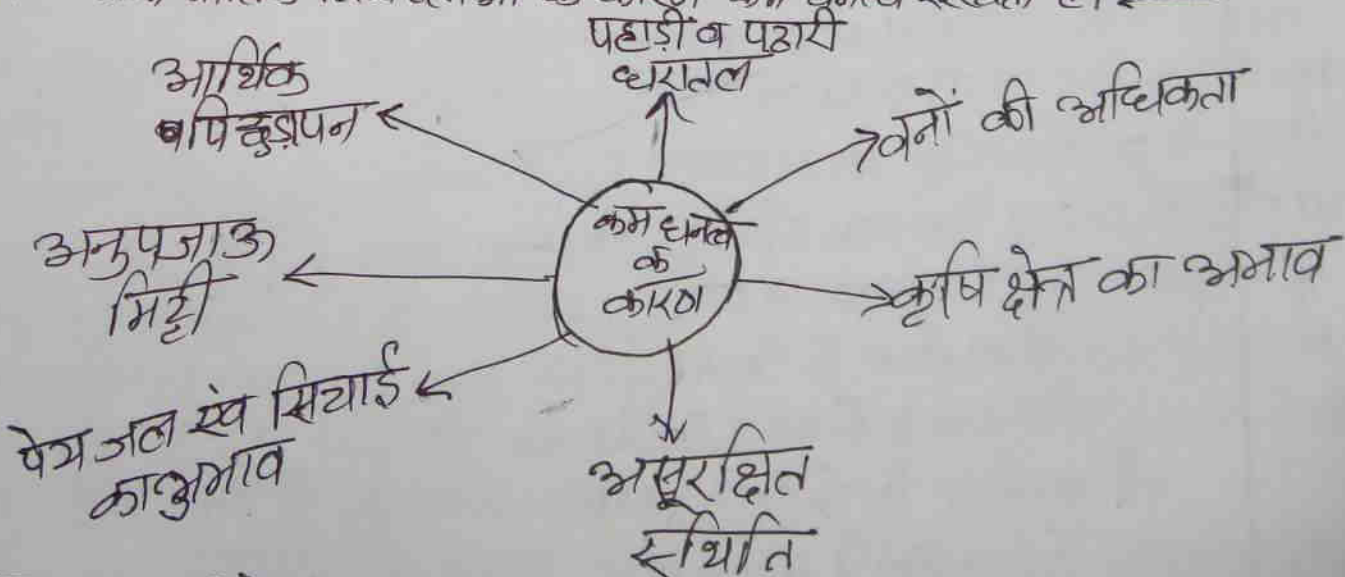 के कारण कम घनत्व
पहाड़ी व पठारी
धरातल
आर्थिक
पिछड़ापन
वनों की अधिकता
कम घनत्व
के
कारण
अनुपजाऊ
मिट्टी
कृषि क्षेत्र का अभाव
पेय जल एंव सिचाई
का अभाव
असूरक्षित
स्थिति